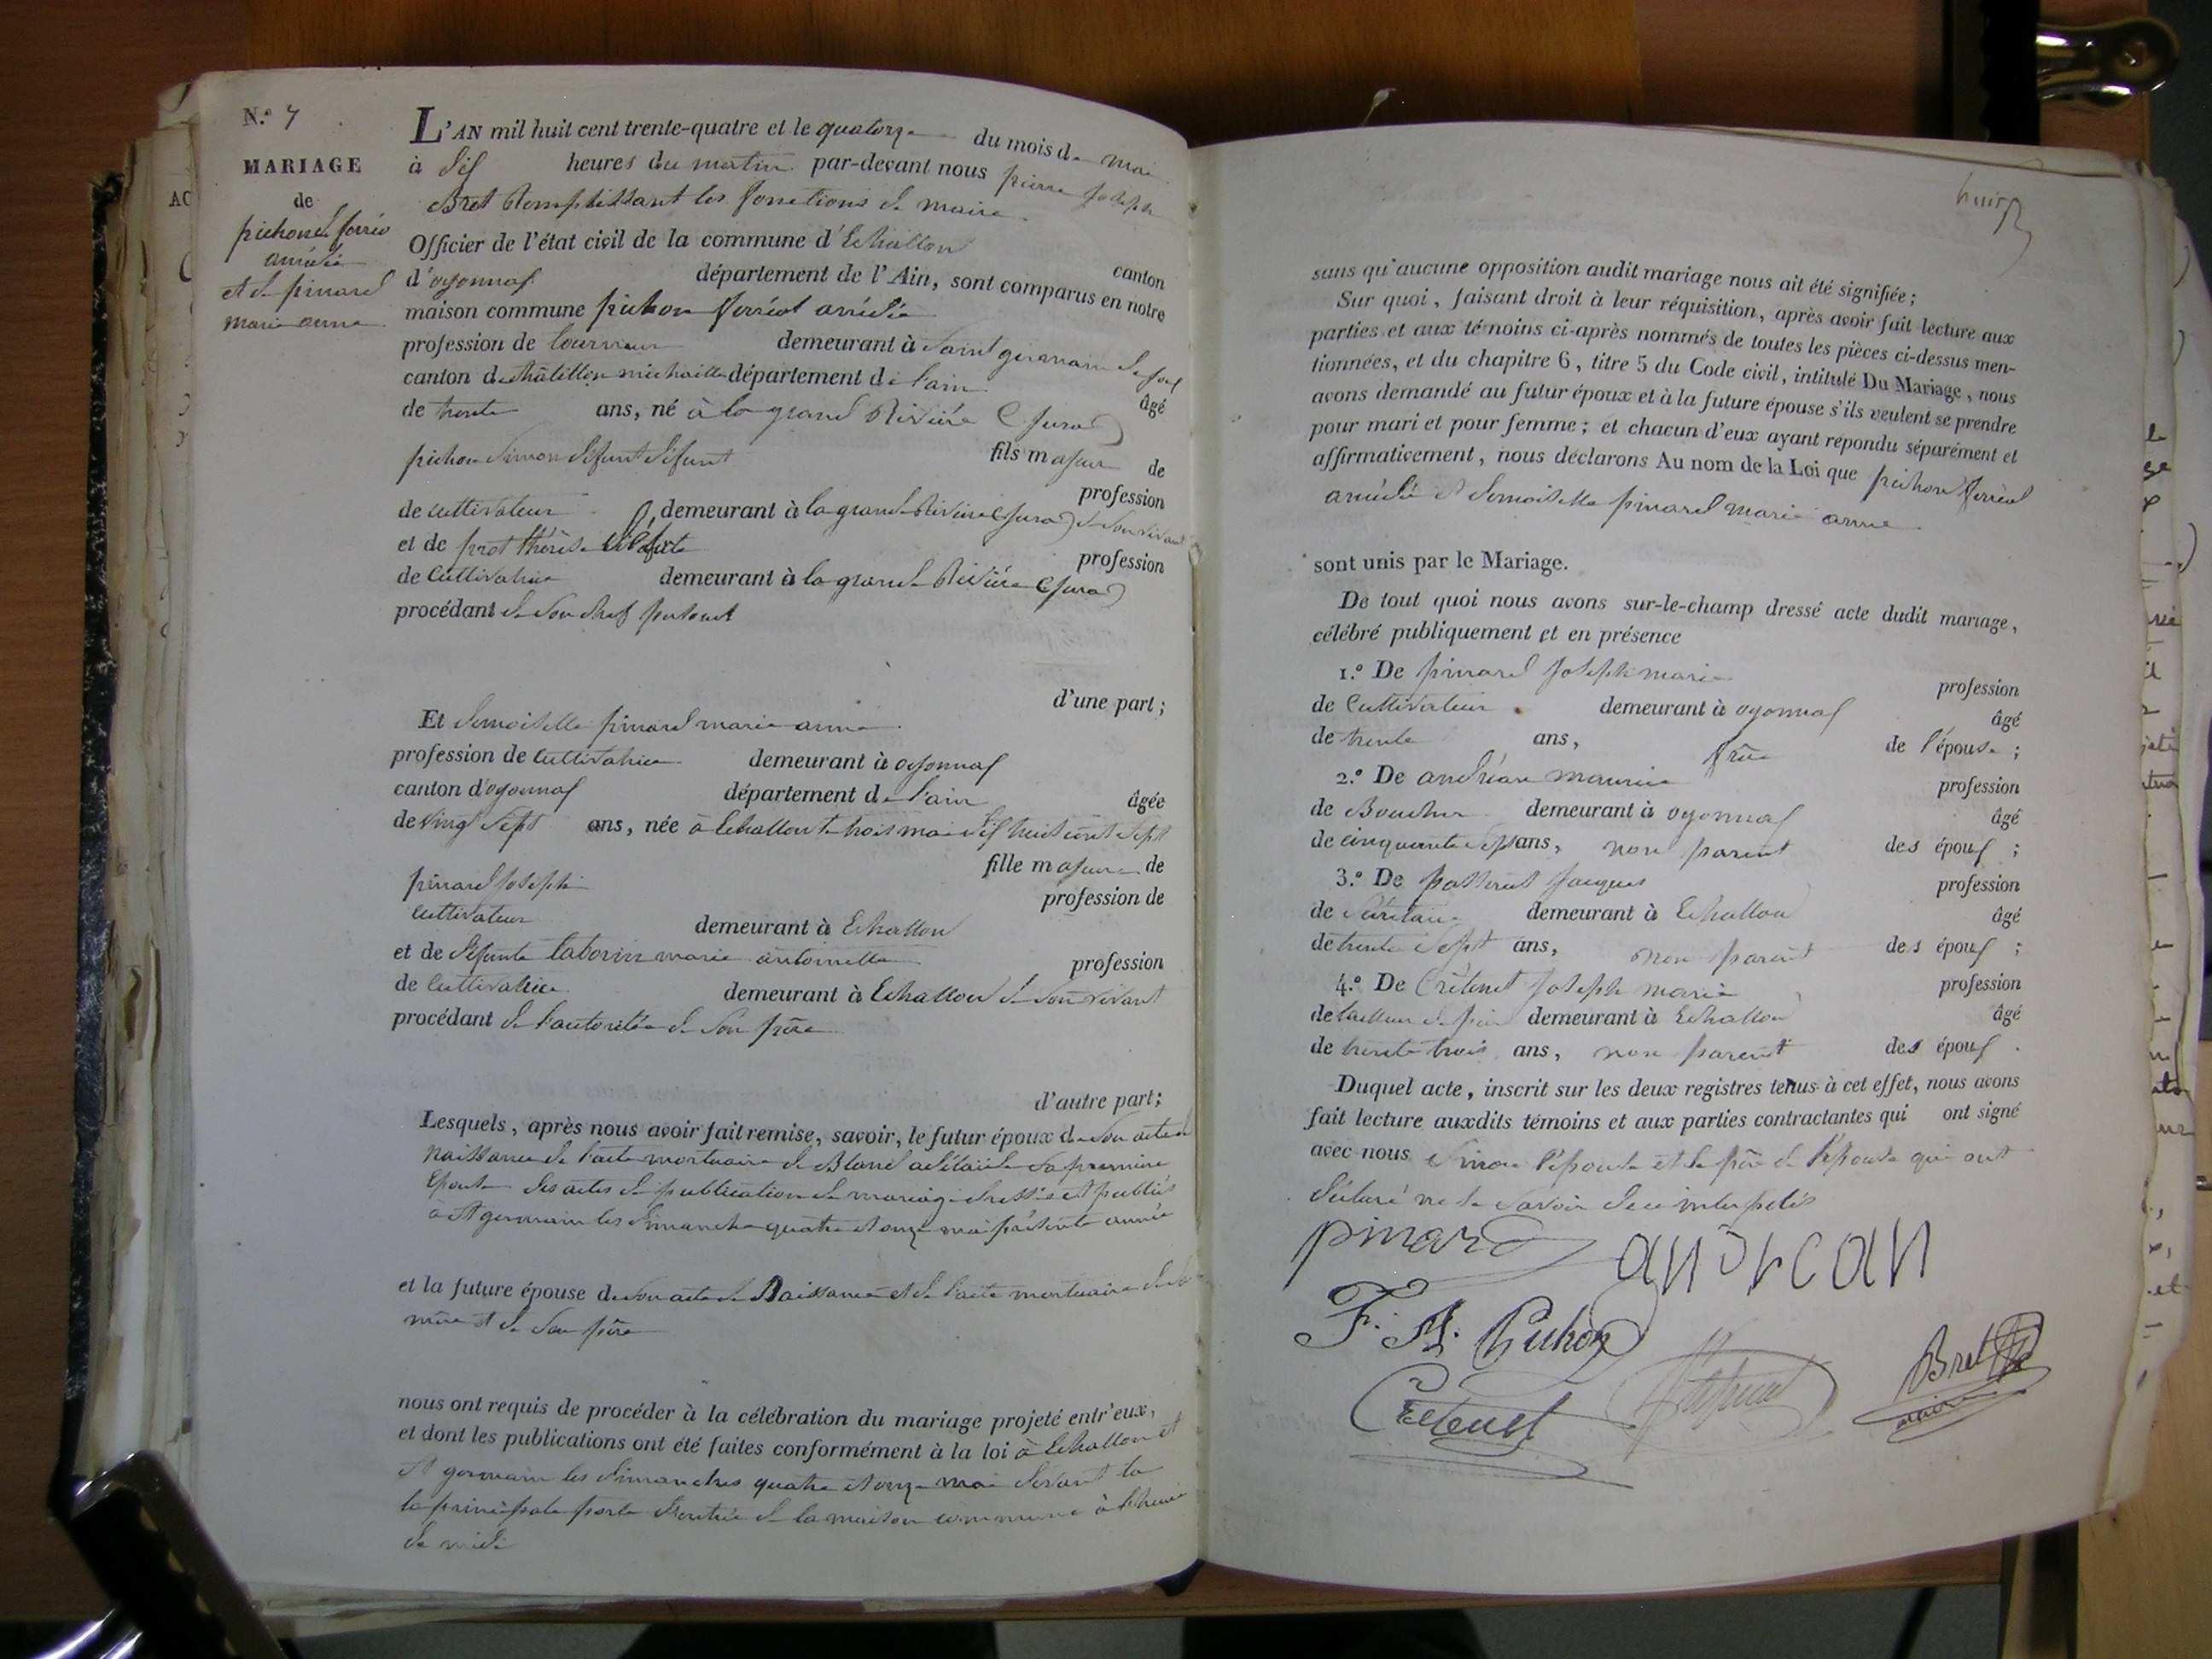 N.º 7
MARIAGE
de
pichon ferréol
amédée
et de pinard
marie anne
L'AN mil huit cent trente-quatre et le quatorze du mois de mai
à dix heures du matin par-devant nous pierre joseph
Bret Remplissant les fonctions de maire
Officier de l'état civil de la commune d'Echallon canton
d'oyonnax département de l'Ain, sont comparus en notre
maison commune pichon ferréol amédée
profession de tourneur demeurant à Saint germain de joux
canton de châtillon michaille département de l'ain âgé
de trente ans, né à la grand Rivière (jura)
fils majeur de
pichon Simon défunt profession
de cultivateur demeurant à la grande Rivière (jura) de Son vivant
et de prot thérèse défunte profession
de Cultivatrice demeurant à la grande Rivière (jura)
procédant de Son chef
d'une part ;
Et demoiselle pinard marie anne
profession de Cultivatrice demeurant à oyonnax
canton d'oyonnax département de l'ain âgée
de vingt Sept ans, née à Echallon le trois mai dix huit cent Sept
fille majeure de
pinard joseph profession de
cultivateur demeurant à Echallon
et de défunte marie antoinette profession
de Cultivatrice demeurant à Echallon de Son vivant
procédant de l'autoritée de Son père
d'autre part ;
Lesquels, après nous avoir fait remise, savoir, le futur époux de Son acte de
Naissance de l'acte mortuaire de Bland adélaïde Sa première
Epouse des actes de publication de mariage dressés et publiés
à St germain les dimanche quatre et onze mai présente année
et la future épouse de Son acte de Naissance et de l'acte mortuaire de Sa
mère et de Son père
nous ont requis de procéder à la célébration du mariage projeté entr'eux,
et dont les publications ont été faites conformément à la loi à Echallon et
St germain les dimanches quatre et onze mai devant la
la principale porte d'entrée de la maison commune à l'heure
de midi
huit
sans qu'aucune opposition audit mariage nous ait été signifiée ;
Sur quoi, faisant droit à leur réquisition, après avoir fait lecture aux
parties et aux témoins ci-après nommés de toutes les pièces ci-dessus men-
tionnées, et du chapitre 6, titre 5 du Code civil, intitulé Du Mariage, nous
avons demandé au futur époux et à la future épouse s'ils veulent se prendre
pour mari et pour femme ; et chacun d'eux ayant répondu séparément et
affirmativement, nous déclarons Au nom de la Loi que pichon ferréol
amédée et demoiselle pinard marie anne
sont unis par le Mariage.
De tout quoi nous avons sur-le-champ dressé acte dudit mariage,
célébré publiquement et en présence
1.º De pinard joseph marie profession
de Cultivateur demeurant à oyonnax âgé
de trente ans, frère de l'épouse ;
2.º De andréan maurice profession
de Boucher demeurant à oyonnax âgé
de cinquante Sept ans, non parent des époux ;
3.º De jacques profession
de Sécrétaire demeurant à Echallon âgé
de trente Sept ans, non parent des époux ;
4.º De Crétenet joseph marie profession
de tailleur de demeurant à Echallon âgé
de trente trois ans, non parent des époux .
Duquel acte, inscrit sur les deux registres tenus à cet effet, nous avons
fait lecture auxdits témoins et aux parties contractantes qui ont signé
avec nous Sinon l'épouse et le père de l'épouse qui ont
déclaré ne le Savoir de ce interpelés
pinard andrean
F. A. Pichon
Cretenet Bret
maire